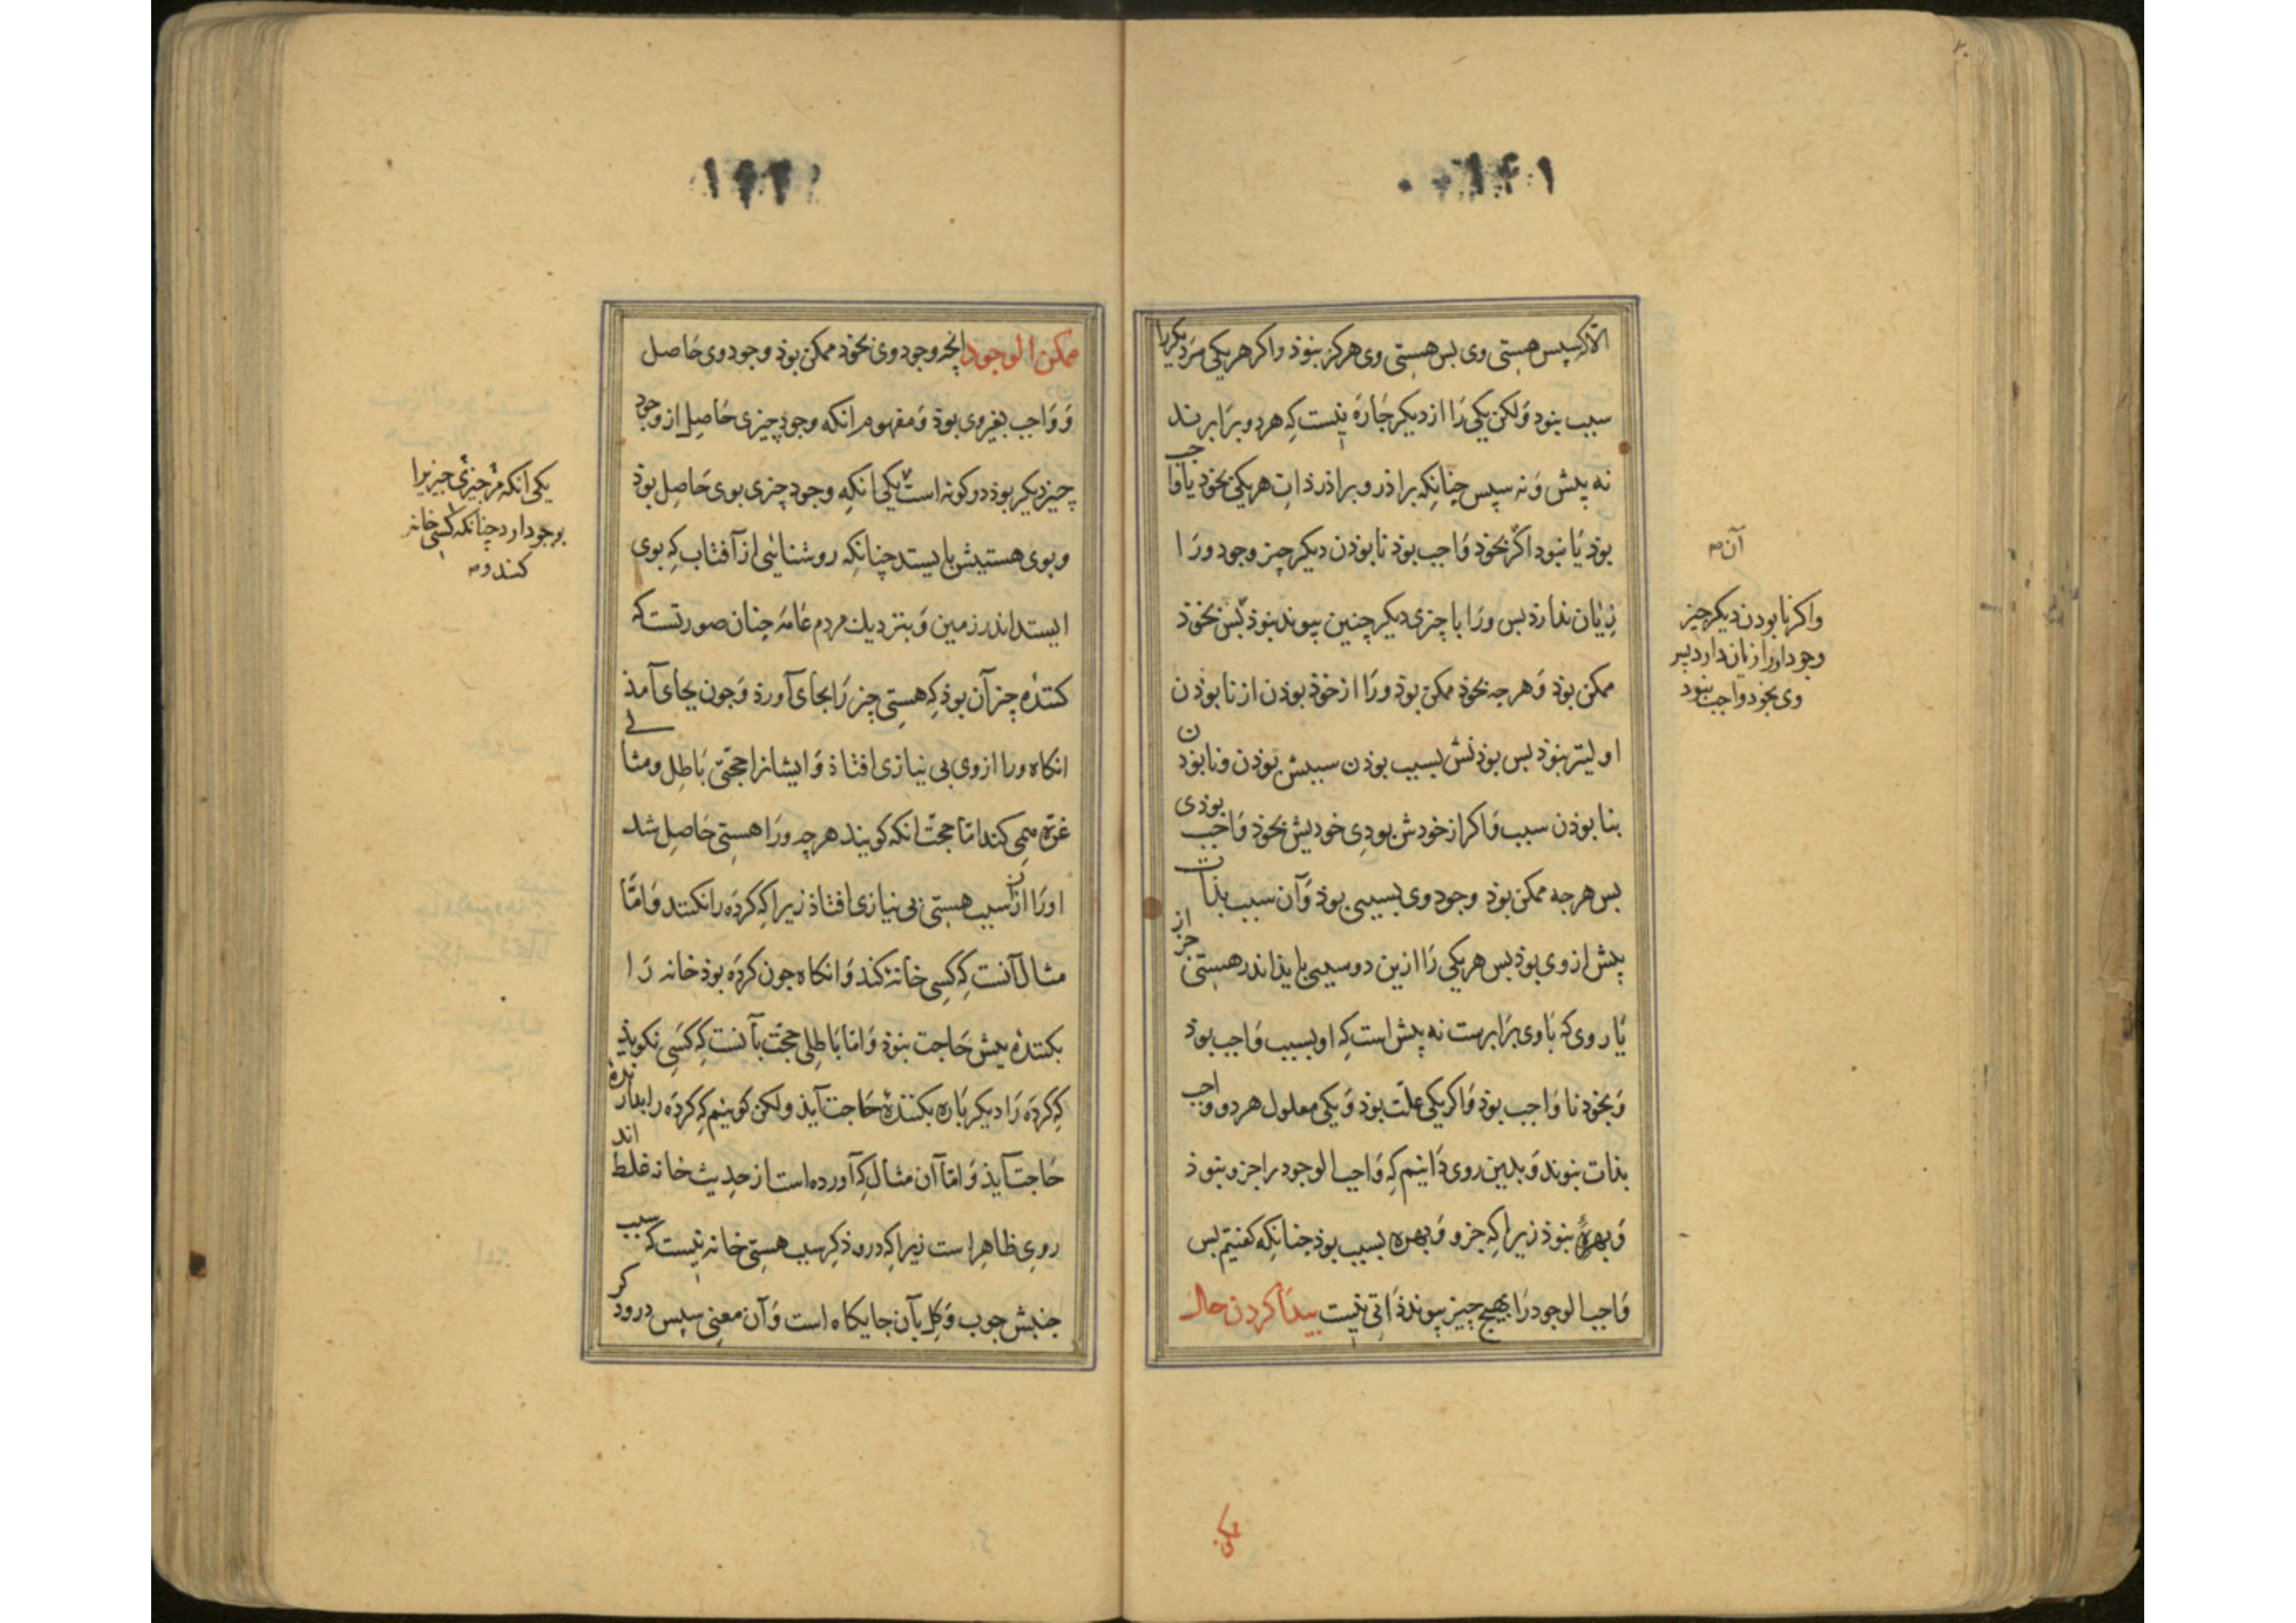 ۱۴۱
الا که سپس هستی وی بس هستی وی هرکز نبوذ واکر هر یکی مر دیکر را
سبب بنود وَلکن یکی رَا از دیکر چَارَه نیست کِه هر دو برَابرند
نه پیش وَنه سپس چنانکِه براذر و براذر ذات هر یکی بخود یا واجب
بوذ یَا نبود اکر بخوذ وَاجب بوذ نابوذن دیکر چیز وجود ورَا
زیَان ندارذ بس ورَا با چیزی دیکر چنین پیوند نبوذ بس بخوذ
ممکن بوذ وَهر چه بخوذ ممکن بوذ ورَا از خوذ بوذن از نابوذن
اولیتر نبوذ بس بوذنش بسبب بوذن سببش بوذن ونابوذن
بنابوذن سبب وَاکر از خودش بودِی خودیش بخوذ وَاجب بوذی
بس هر چه ممکن بوذ وجود وی بسببی بوذ وَآن سبب بذات
پیش از وی بوذ بس هر یکی رَا ازین دو سببی بایذ اندر هستی جز از
یَار وی که بَا وی برَابرست نه پیش است کِه او بسبب وَاجب بوذ
وَبخوذ نا وَاجب بوذ وَاکر یکی علّت بوذ وَیکی معلول هر دو واجب
بذات بنوند وَبدین روی دَانیم کِه وَاجب الوجود را جزو بنوذ
وَبهرهٔ بنوذ زیرا کِه جزو وَبهره بسبب بوذ چنانکِه کفتیم بس
وَاجب الوجود رَا بهیچ چیز پیوند ذَاتی نیست پیدَا کردن حال
آن
واکر نابودن دیکر چیز
وجود اورا زیان دارد پس
وی بخود واجب نبود
ممکن
۱۴۲
ممکن الوجود انچه وجود وی بخوذ ممکن بوذ وجود وی حَاصل
وَوَاجب بغیر وی بوذ وَمفهوم انکه وجود چیزی حَاصل از وجود
چیز دیکر بوذ دو کونه است یکی انکِه وجود چیزی بوی حَاصل بوذ
وبوی هستیش بایستد چنانکِه روشنائی از آفتاب کِه بوی
ایستد اندر زمین وَبنزدیك مردم عَامَه چنان صورتست که
کنندهٔ چیز آن بوذ کِه هستِی چیز رَا بجای آورذ وَچون بجای آمذ
انکاه ورا از وی بی نیازی افتاذ وَایشانرا حجّتی بَاطِل ومثالی
غرّه می کند امّا حجّت انکه کویند هر چه ورَا هستِی حَاصِل شد
اورَا از سبب هستِی بی نیازی افتاذ زیرا کِه کردَه را نکنند وَامّا
مثال آنست کِه کسِی خانه کند وَانکاه چون کردَه بوذ خانه رَا
بکنندهٔ پیش حَاجت نبوذ وَامّا بَاطِلی حجّت بآنست کِه کسی نکویذ
کِه کردَه رَا دیکر بَاره بکنندهٔ حَاجت آیذ ولکن کوئیم کِه کردَه را بدارنده
حَاجت آیذ وَامّا آن مثال کِه آورده اند است از حدِیث خانه غلط
رویِ ظَاهِر است زیرا کِه درودکر سبب هستِی خانه نیست که سبب
جنبش چوب وَکِل بآن جایکاه است وَآن معنی سپس درودکر
یکی انکه مر چیزی چیزیرا
بوجود ارد چنانکه کسی خانه
کند و